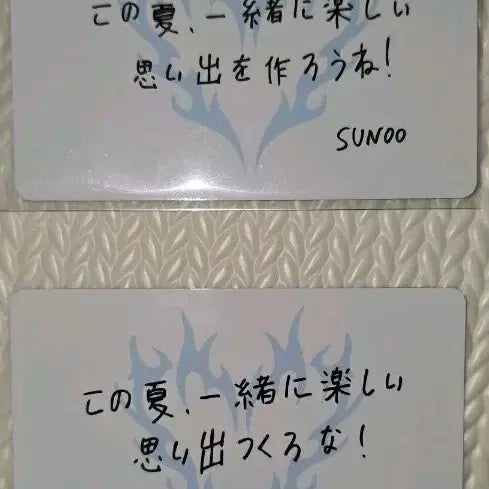 この夏、一緒に楽しい
思い出を作ろうね!
SUNOO
この夏、一緒に楽しい
思い出つくろな!